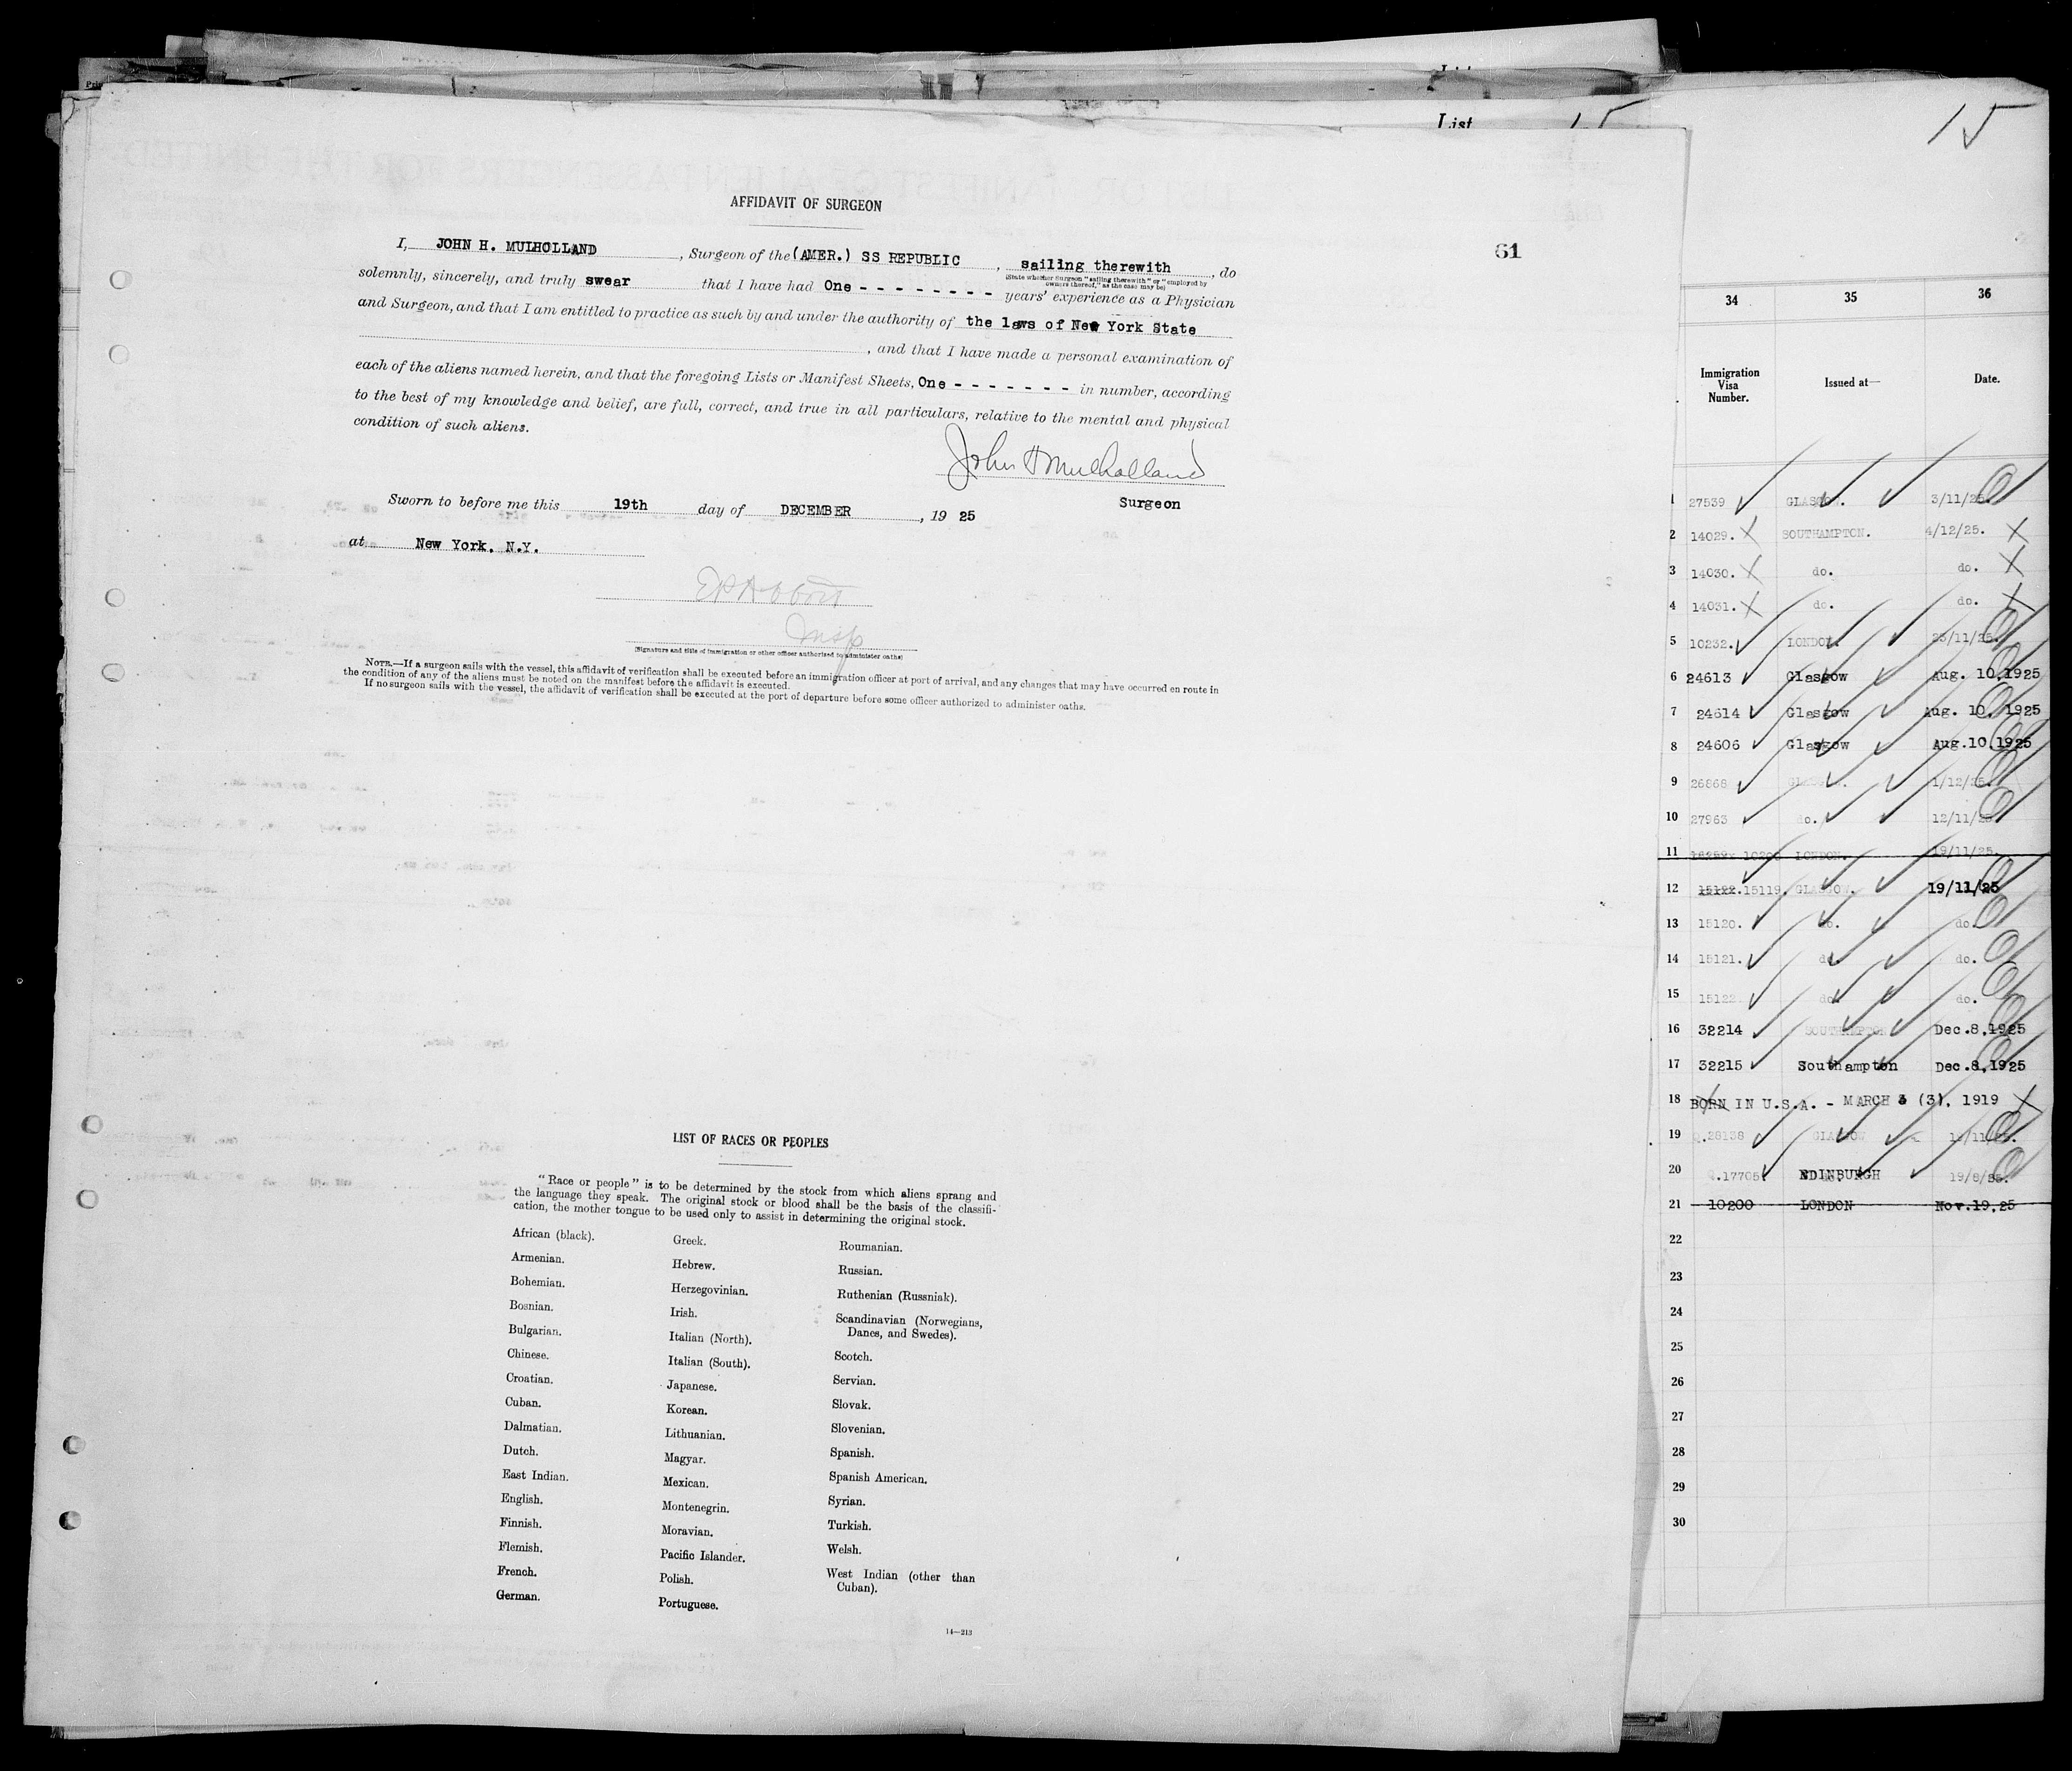 List
15
AFFIDAVIT OF SURGEON
61
I, JOHN H. MULHOLLAND, Surgeon of the (AMER.) SS REPUBLIC, sailing therewith, do
(State whether Surgeon "sailing therewith" or "employed by owners thereof," as the case may be)
solemnly, sincerely, and truly swear that I have had One - - - - - - - - years' experience as a Physician
and Surgeon, and that I am entitled to practice as such by and under the authority of the laws of New York State
, and that I have made a personal examination of
each of the aliens named herein, and that the foregoing Lists or Manifest Sheets, One - - - - - - - in number, according
to the best of my knowledge and belief, are full, correct, and true in all particulars, relative to the mental and physical
condition of such aliens.
John H Mulholland
Surgeon
Sworn to before me this 19th day of DECEMBER, 19 25
at New York, N.Y.
Insp
(Signature and title of immigration or other officer authorized to administer oaths)
NOTE.—If a surgeon sails with the vessel, this affidavit of verification shall be executed before an immigration officer at port of arrival, and any changes that may have occurred en route in
the condition of any of the aliens must be noted on the manifest before the affidavit is executed.
If no surgeon sails with the vessel, the affidavit of verification shall be executed at the port of departure before some officer authorized to administer oaths.
LIST OF RACES OR PEOPLES
"Race or people" is to be determined by the stock from which aliens sprang and
the language they speak. The original stock or blood shall be the basis of the classifi-
cation, the mother tongue to be used only to assist in determining the original stock.
African (black).
Armenian.
Bohemian.
Bosnian.
Bulgarian.
Chinese.
Croatian.
Cuban.
Dalmatian.
Dutch.
East Indian.
English.
Finnish.
Flemish.
French.
German.
Greek.
Hebrew.
Herzegovinian.
Irish.
Italian (North).
Italian (South).
Japanese.
Korean.
Lithuanian.
Magyar.
Mexican.
Montenegrin.
Moravian.
Pacific Islander.
Polish.
Portuguese.
Roumanian.
Russian.
Ruthenian (Russniak).
Scandinavian (Norwegians,
Danes, and Swedes).
Scotch.
Servian.
Slovak.
Slovenian.
Spanish.
Spanish American.
Syrian.
Turkish.
Welsh.
West Indian (other than
Cuban).
14—213
34 35 36
Immigration Visa Number. Issued at— Date.
1 27539 GLASGOW. 3/11/25.
2 14029. SOUTHAMPTON. 4/12/25.
3 14030. do. do.
4 14031. do. do.
5 10232. LONDON. 23/11/25.
6 24613 Glasgow Aug. 10,1925
7 24614 Glasgow Aug. 10, 1925
8 24606 Glasgow Aug.10,1925
9 26868 GLASGOW. 1/12/25.
10 27963 do. 12/11/25
11 LONDON. 19/11/25.
12 15122.15119. GLASGOW. 19/11/25
13 15120. do. do.
14 15121. do. do.
15 15122. do. do.
16 32214 SOUTHAMPTON Dec.8,1925
17 32215 Southampton Dec.8,1925
18 BORN IN U.S.A. - MARCH 3 (3), 1919
19 Q.28138 GLASGOW
20 Q.17705 EDINBURGH 19/8/25.
21 10200 LONDON Nov.19,25
22
23
24
25
26
27
28
29
30